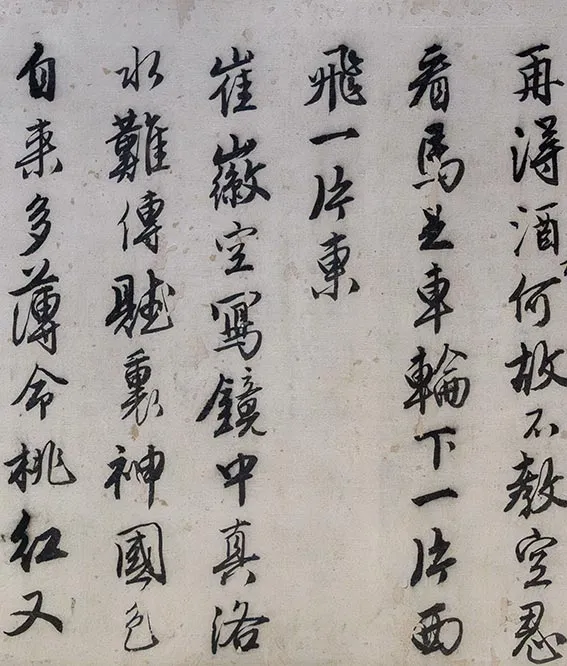 再得酒何故不教空忍
看馬足車輪下一片西
飛一片東
崔徽空寫鏡中真洛
水難傳賦裏神國色
自来多薄命桃紅又